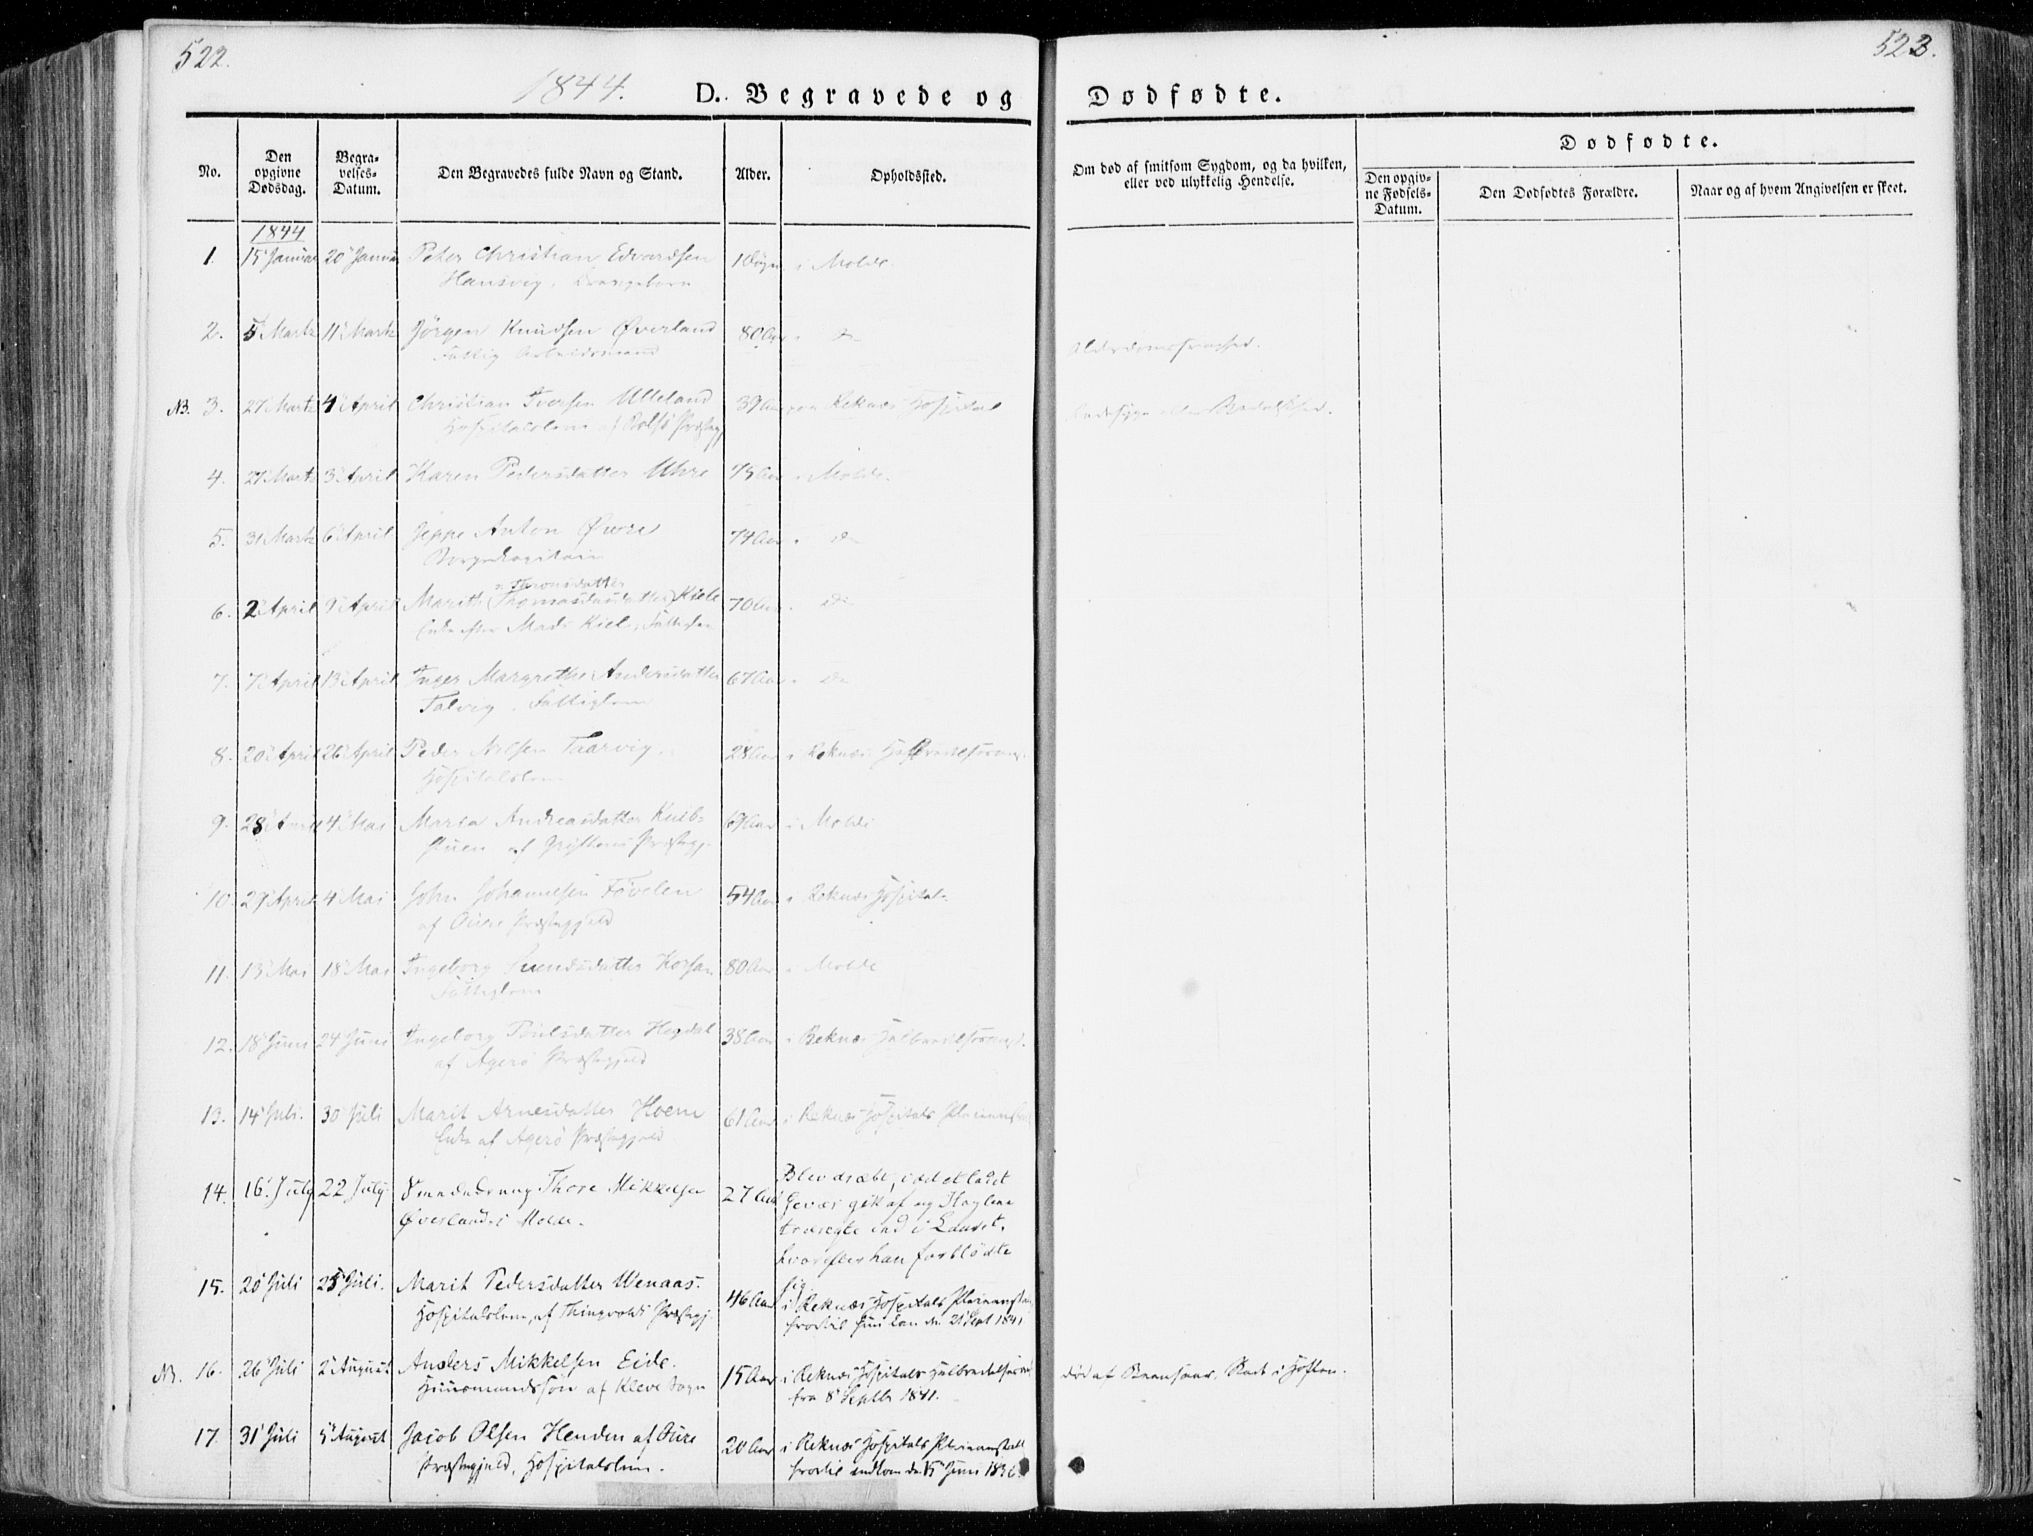 522.
523.
1844. D. Begravede og Dødfødte.
No.
Den opgivne Dødsdag.
Begravelses-Datum.
Den Begravedes fulde Navn og Stand.
Alder.
Opholdssted.
Om død af smitsom Sygdom, og da hvilken, eller ved ulykkelig Hendelse.
Dødfødte.
Den opgivne Fødsels-Datum.
Den Dødfødtes Forældre.
Naar og af hvem Angivelsen er skeet.
1844
1. 15 Januar 20 Januar Peter Christian Edvardsen 1 Døgn i Molde.
Hansvig,
2. 5 Martz 11 Martz Jørgen Knudsen Øverland 80 Aar do
Fattig Arbeidsmand
Alderdomssvaghed.
NB. 3. 27 Martz 4 April Christian Iversen Ulleland 39 Aar Reknæs Hospital
Hospitalslem af Præstegj
4. 27 Martz 3 April Karen Pedersdatter Uhre 75 Aar i Molde.
5. 31 Martz 6 April Jeppe Anton Øwre 74 Aar do
Borgerkapitain
Thronsdatter
6. 2 April 9 April Marith (Thomasdatter) Kiele 70 Aar do
Enke efter Mads Kiel, Fattiglem
7. 7 April 13 April Inger Margrethe Andersdatter 67 Aar do
Talvig, Fattiglem
8. 20 April 26 April Peder Nilsen Taarvig 28 Aar i Reknæs
Hospitalslem
9. 28 April 4 Mai Marta Andreasdatter 69 Aar i Molde
stuen af Præstegj.
10. 29 April 4 Mai John Johannesen Føvelen 54 Aar i Reknæs Hospital.
af Øure Præstegjæld
11. 13 Mai 18 Mai Ingeborg Svendsdatter Korsan 80 Aar i Molde
Fattiglem
12. 18 Juni 24 Juni Ingeborg Poulsdatter Hegdal 38 Aar i Reknæs Helbredelsesanst.
af Agerø Præstegjeld
13. 14 Juli. 30 Juli Marit Arnesdatter Hoem 61 Aar i Reknæs Hospitals Pleieanstalt
Enke af Agerø Præstegjeld
14. 16. July 22 July Smededreng Thore Mikkelsen 27 Aar Blev dræbt, idet et ladet
Øverland i Molde.
Gevær gik af og Haglene
trængte ind i Laaret.
hvorefter han forblødte
sig.
15. 20 Juli 25 Juli. Marit Pedersdatter Wenaas. 46 Aar i Reknæs Hospitals Pleieanstalt
Hospitalslem, af Thingvolds Præstegj.
hvortil hun kom den 21 Sept 1841
NB. 16. 26 Juli 2 August Anders Mikkelsen Eide. 15 Aar i Reknæs Hospitals Helbredelsesanst
Huusmandssøn af Kleve Sogn
fra 8 Septbr 1841.
død af i Hoften.
17. 31 Juli 5 August Jacob Olsen Henden af Øure 20 Aar i Reknæs Hospitals Pleieanstalt
Præstegjeld, Hospitalslem.
hvortil indkom den 15 Juni 1836